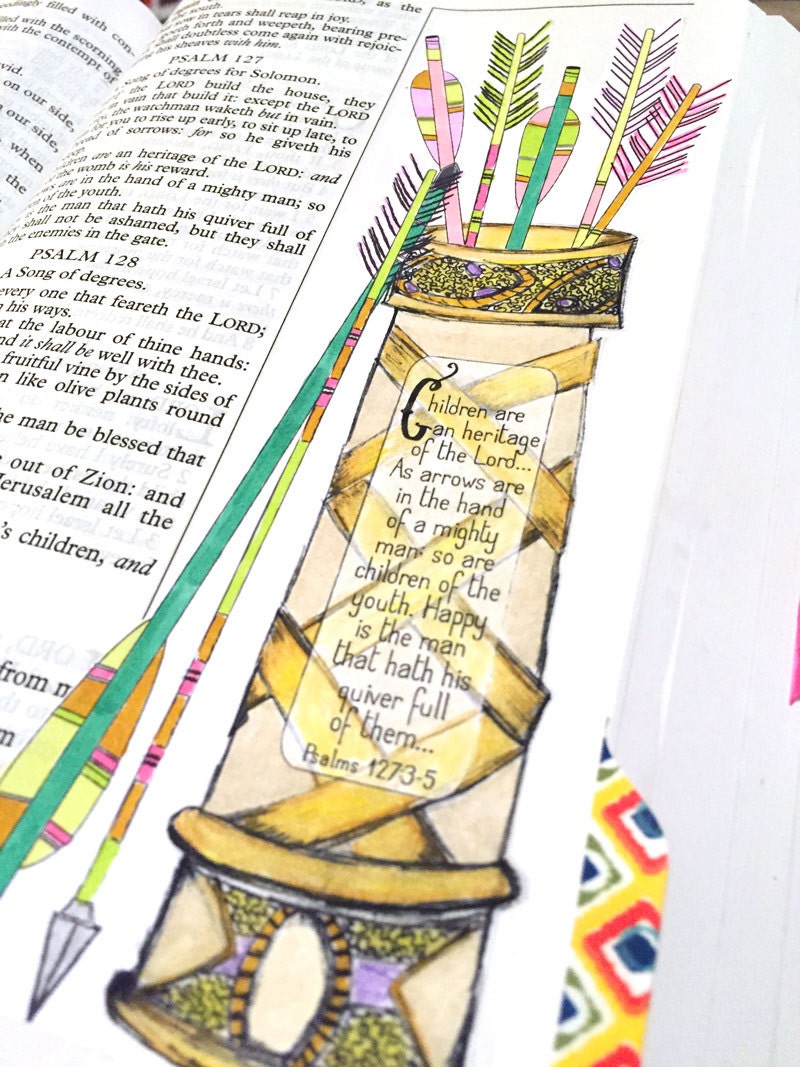 rdingly filled with con-
filled with the scorning
with the contempt of
vid.
on our side,
our side,
when
the
as the
the south.
sow in tears shall reap in joy.
goeth forth and weepeth, bearing pre-
shall doubtless come again with rejoic-
his sheaves with him.
PSALM 127
Song of degrees for Solomon.
the LORD build the house, they
in vain that build it: except the LORD
the watchman waketh but in vain.
for you to rise up early, to sit up late, to
of sorrows: for so he giveth his
are an heritage of the LORD: and
the womb is his reward.
are in the hand of a mighty man; so
of the youth.
is the man that hath his quiver full of
shall not be ashamed, but they shall
the enemies in the gate.
PSALM 128
A Song of degrees.
every one that feareth the LORD;
his ways.
the labour of thine hands:
it shall be well with thee.
fruitful vine by the sides of
like olive plants round
the man be blessed that
out of Zion: and
Jerusalem all the
's children, and
from
Children are
an heritage
of the Lord...
As arrows are
in the hand
of a mighty
man: so are
children of the
youth. Happy
is the man
that hath his
quiver full
of them...
Psalms 127:3-5